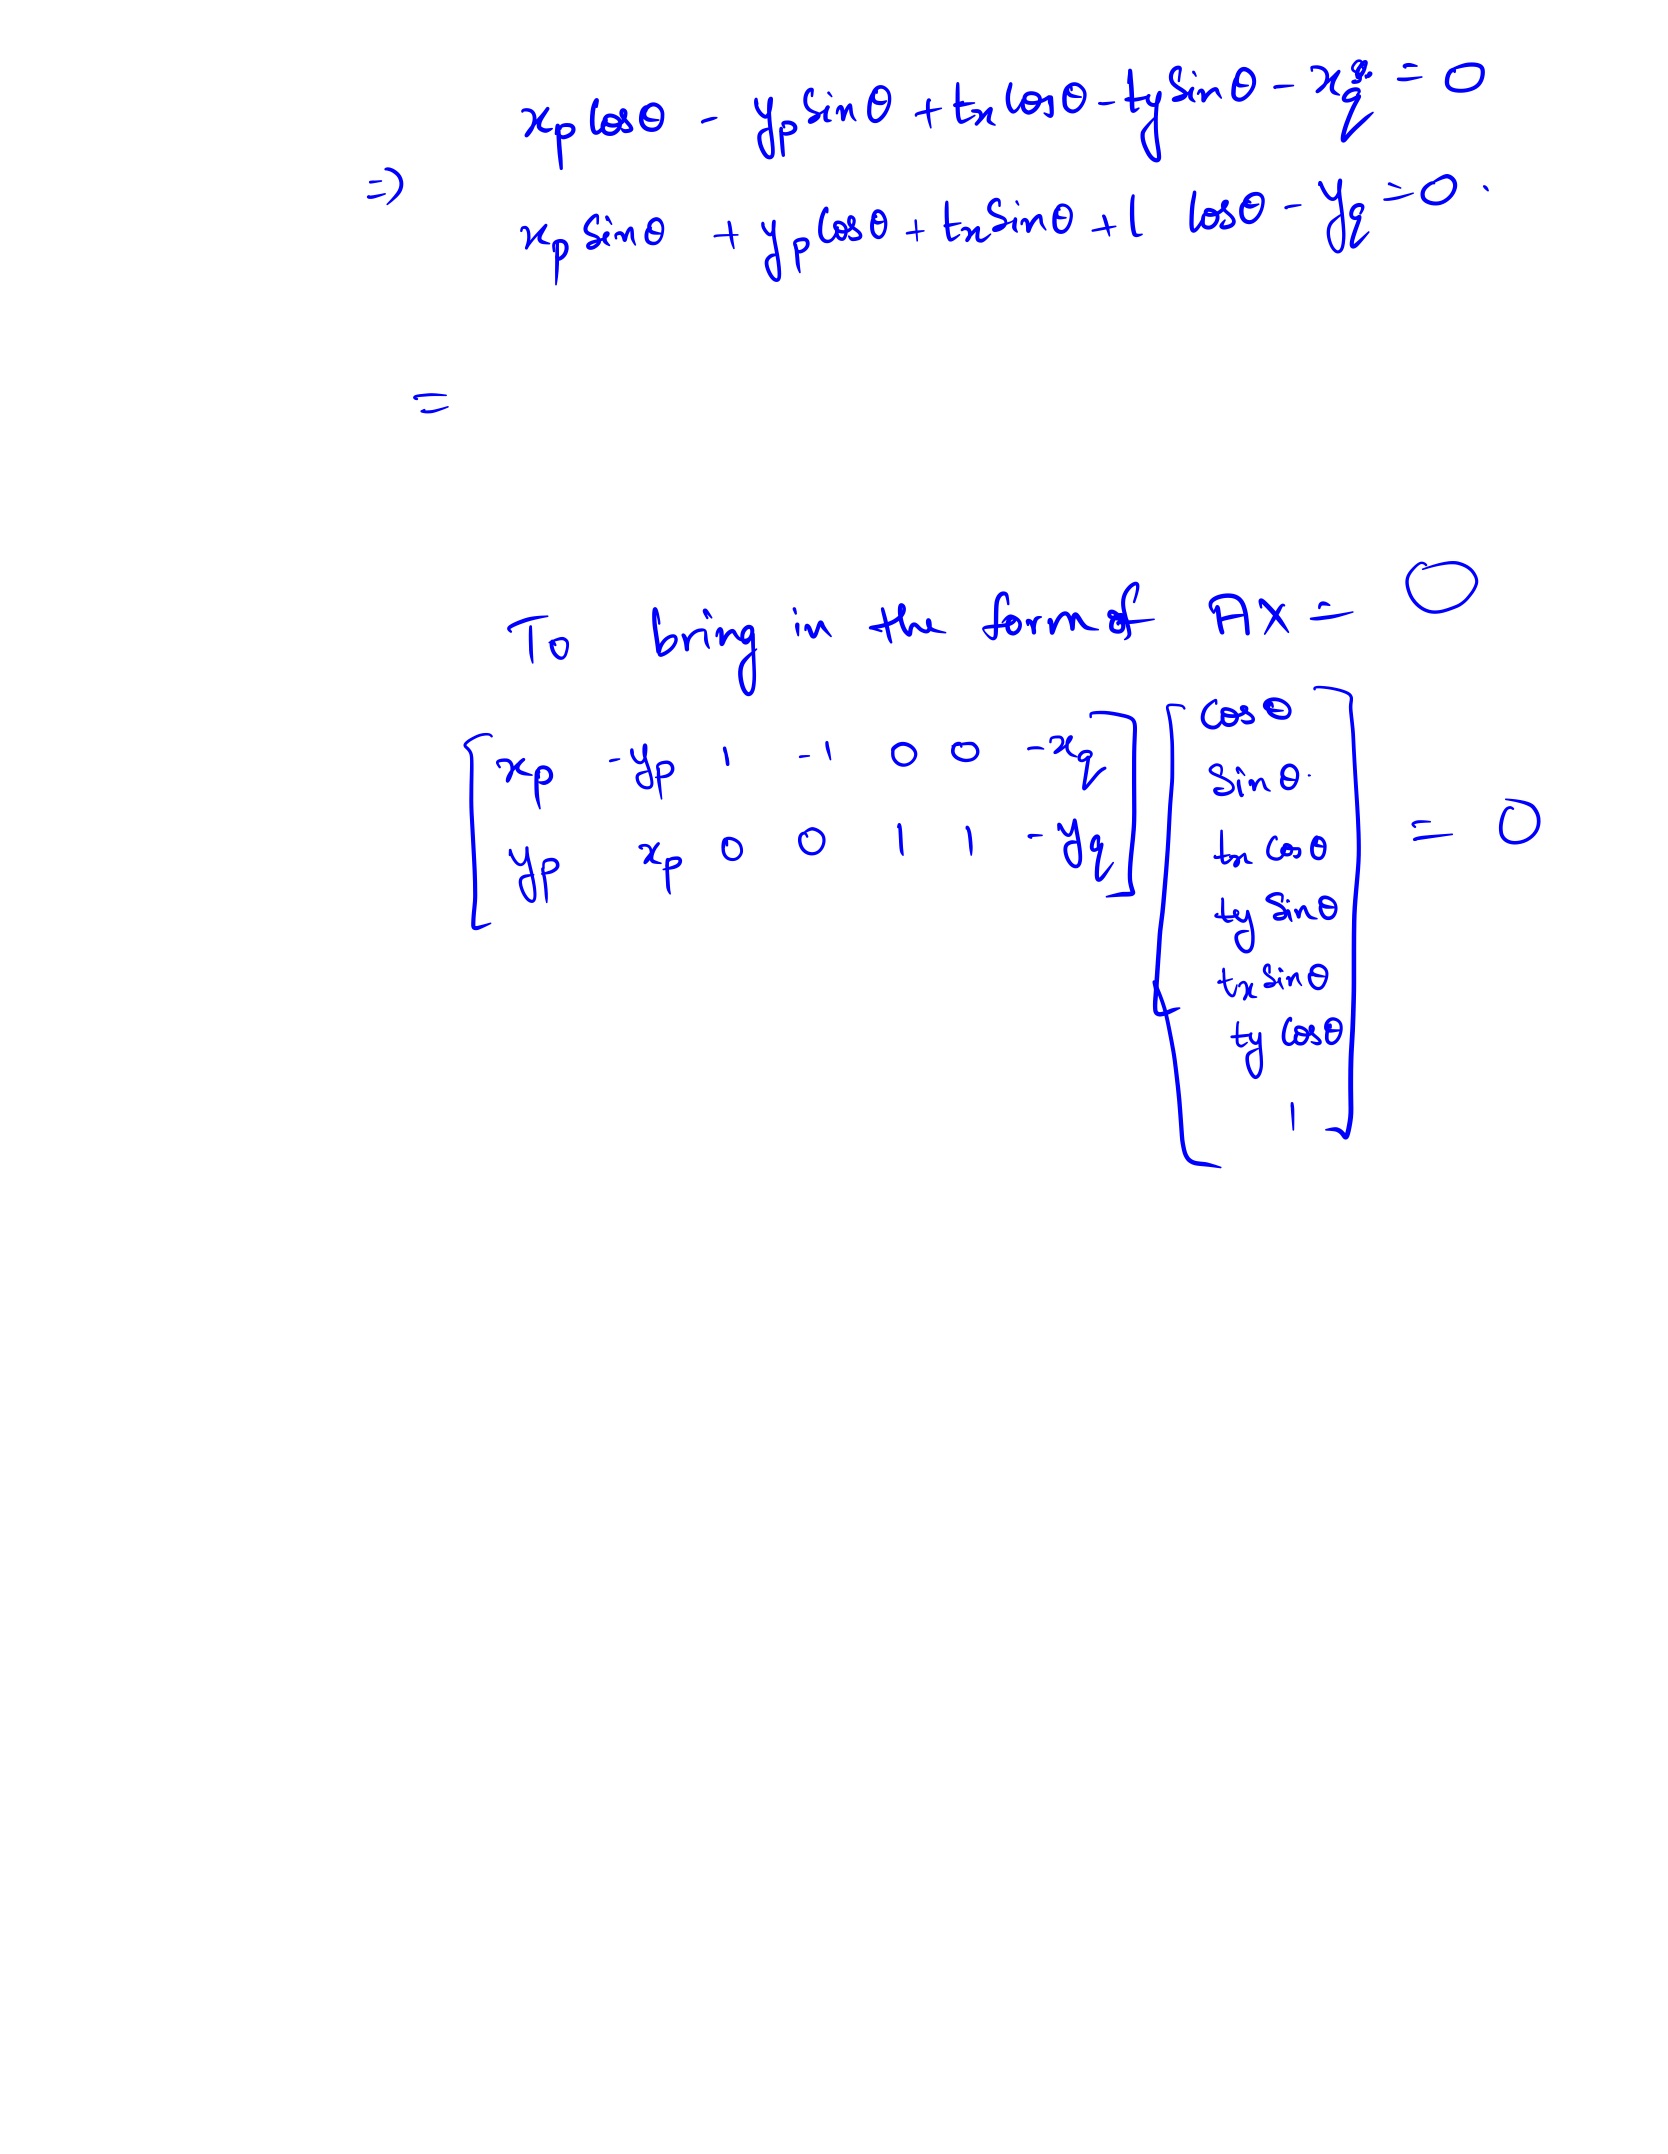 x_p cosθ - y_p sinθ + t_x cosθ - t_y sinθ - x_q = 0
⇒
x_p sinθ + y_p cosθ + t_x sinθ + cosθ - y_q = 0 .
=
To bring in the form of AX = 0
[ x_p -y_p 1 -1 0 0 -x_q ] [ cosθ
y_p x_p 0 0 1 1 -y_q sinθ.
t_x cosθ = 0
t_y sinθ
t_x sinθ
t_y cosθ
1 ]